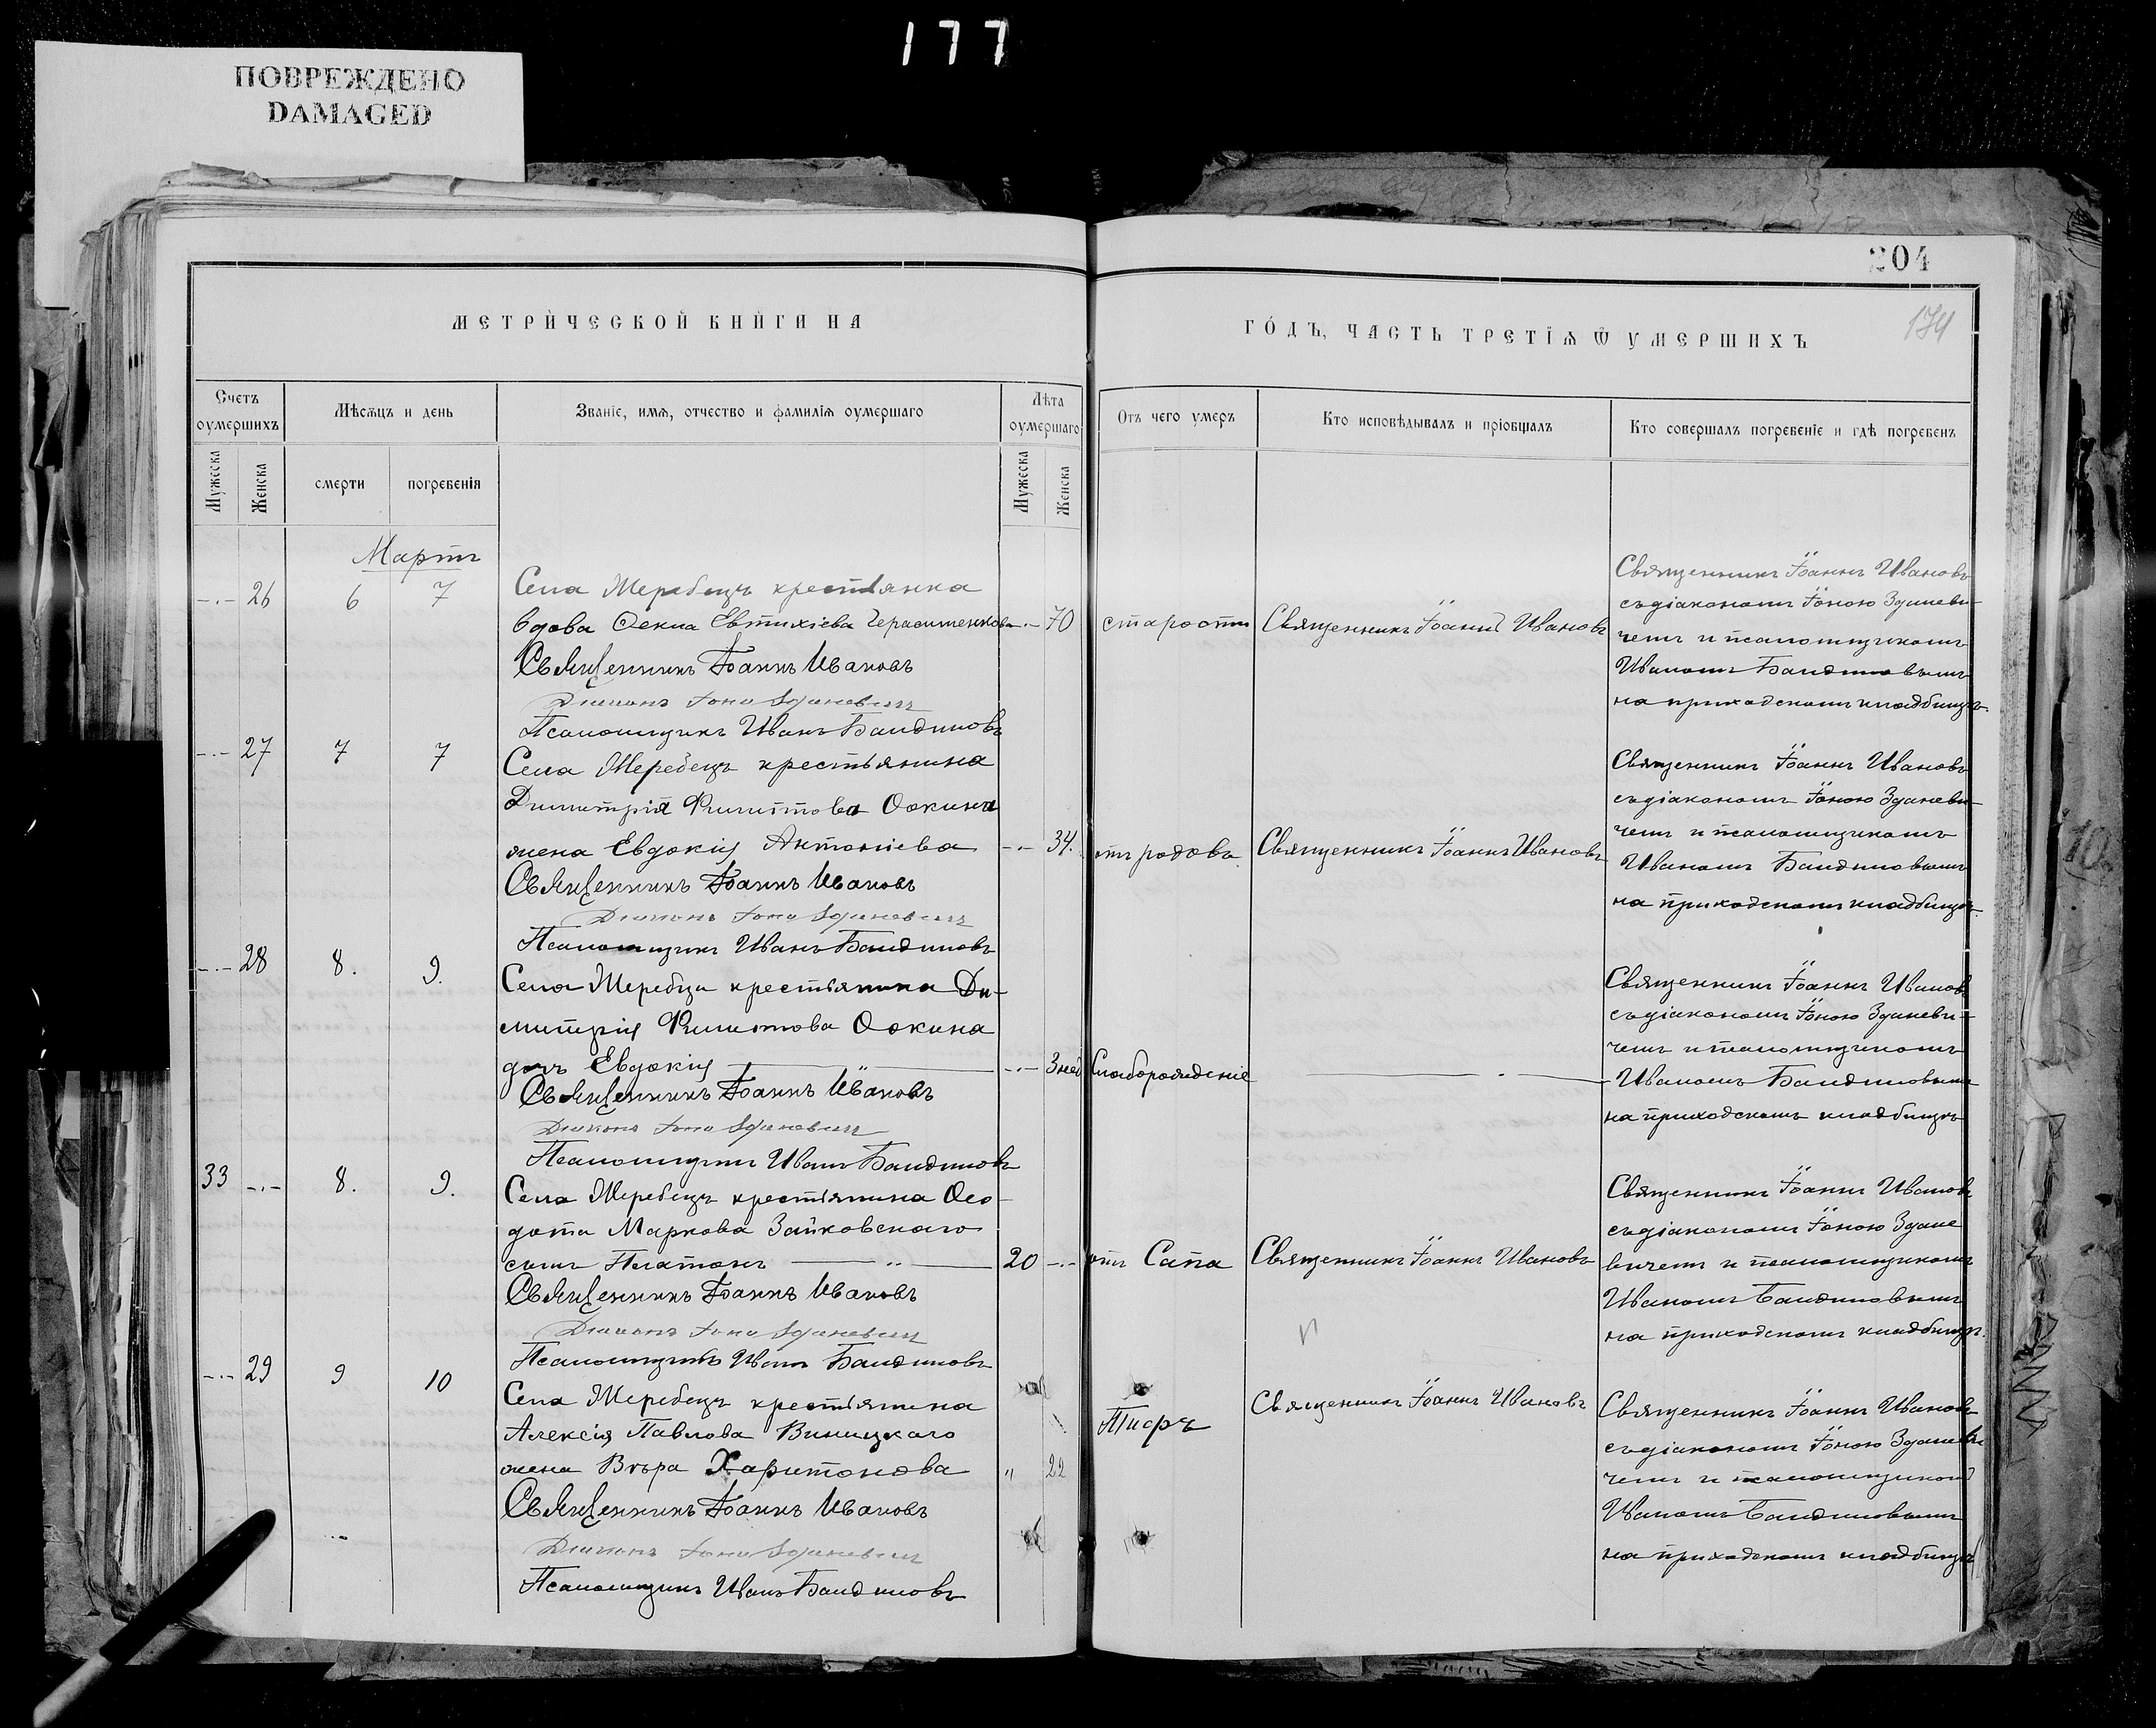 177
ПОВРЕЖДЕНО
DAMAGED
204
174
МЕТРИЧЕСКОЙ КНИГИ НА
ГОДЪ, ЧАСТЬ ТРЕТІѦ Ѿ УМЕРШИХЪ
Счетъ оумершихъ
Мѣсѧцъ и день
Званіе, имѧ, отчество и фамиліѧ оумершаго
Лѣта оумершаго
Отъ чего умеръ
Кто исповѣдывалъ и пріобщалъ
Кто совершалъ погребеніе и гдѣ погребенъ
Мужеска
Женска
смерти
погребенія
Мужеска
Женска
Мартъ
26 6 7
Села Жеребецъ крестьянка
вдова Ѳекла Евтихіева Герасименкова 70
старости
Священникъ Іоаннъ Ивановъ
Священникъ Іоаннъ Ивановъ
съ діакономъ Іоною Зданеви-
чемъ и псаломщикомъ
Иваномъ Бандиновымъ
на приходскомъ кладбищѣ.
Священникъ Іоаннъ Ивановъ
Діаконъ Іона Зданевичъ
Псаломщикъ Иванъ Бандиновъ
27 7 7
Села Жеребецъ крестьянина
Димитрія Филиппова Ѳокина
жена Евдокія Антоніева 34.
отъ родовъ.
Священникъ Іоаннъ Ивановъ
Священникъ Іоаннъ Ивановъ
съ діакономъ Іоною Зданеви-
чемъ и псаломщикомъ
Иваномъ Бандиновымъ
на приходскомъ кладбищѣ.
Священникъ Іоаннъ Ивановъ
Діаконъ Іона Зданевичъ
Псаломщикъ Иванъ Бандиновъ
28 8. 9.
Села Жеребца крестьянина Ди-
митрія Филиппова Ѳокина
дочь Евдокія 3 нед
Слаборожденіе
Священникъ Іоаннъ Ивановъ
съ діакономъ Іоною Зданеви-
чемъ и псаломщикомъ
Иваномъ Бандиновымъ
на приходскомъ кладбищѣ
Священникъ Іоаннъ Ивановъ
Діаконъ Іона Зданевичъ
Псаломщикъ Иванъ Бандиновъ
33 8. 9.
Села Жеребецъ крестьянина Ѳео-
дота Маркова Зайковскаго
сынъ Платонъ 20
отъ Сапа
Священникъ Іоаннъ Ивановъ
Священникъ Іоаннъ Ивановъ
съ діакономъ Іоною Здане
вичемъ и псаломщикомъ
Иваномъ Бандиновымъ
на приходскомъ кладбищѣ.
Священникъ Іоаннъ Ивановъ
Діаконъ Іона Зданевичъ
Псаломщикъ Иванъ Бандиновъ
29 9 10
Села Жеребецъ крестьянина
Алексія Павлова Виницкаго
жена Вѣра Харитонова " 22
Тифъ
Священникъ Іоаннъ Ивановъ
Священникъ Іоаннъ Ивановъ
съ діакономъ Іоною Зданеви
чемъ и псаломщикомъ
Иваномъ Бандиновымъ
на приходскомъ кладбищѣ
Священникъ Іоаннъ Ивановъ
Діаконъ Іона Зданевичъ
Псаломщикъ Иванъ Бандиновъ